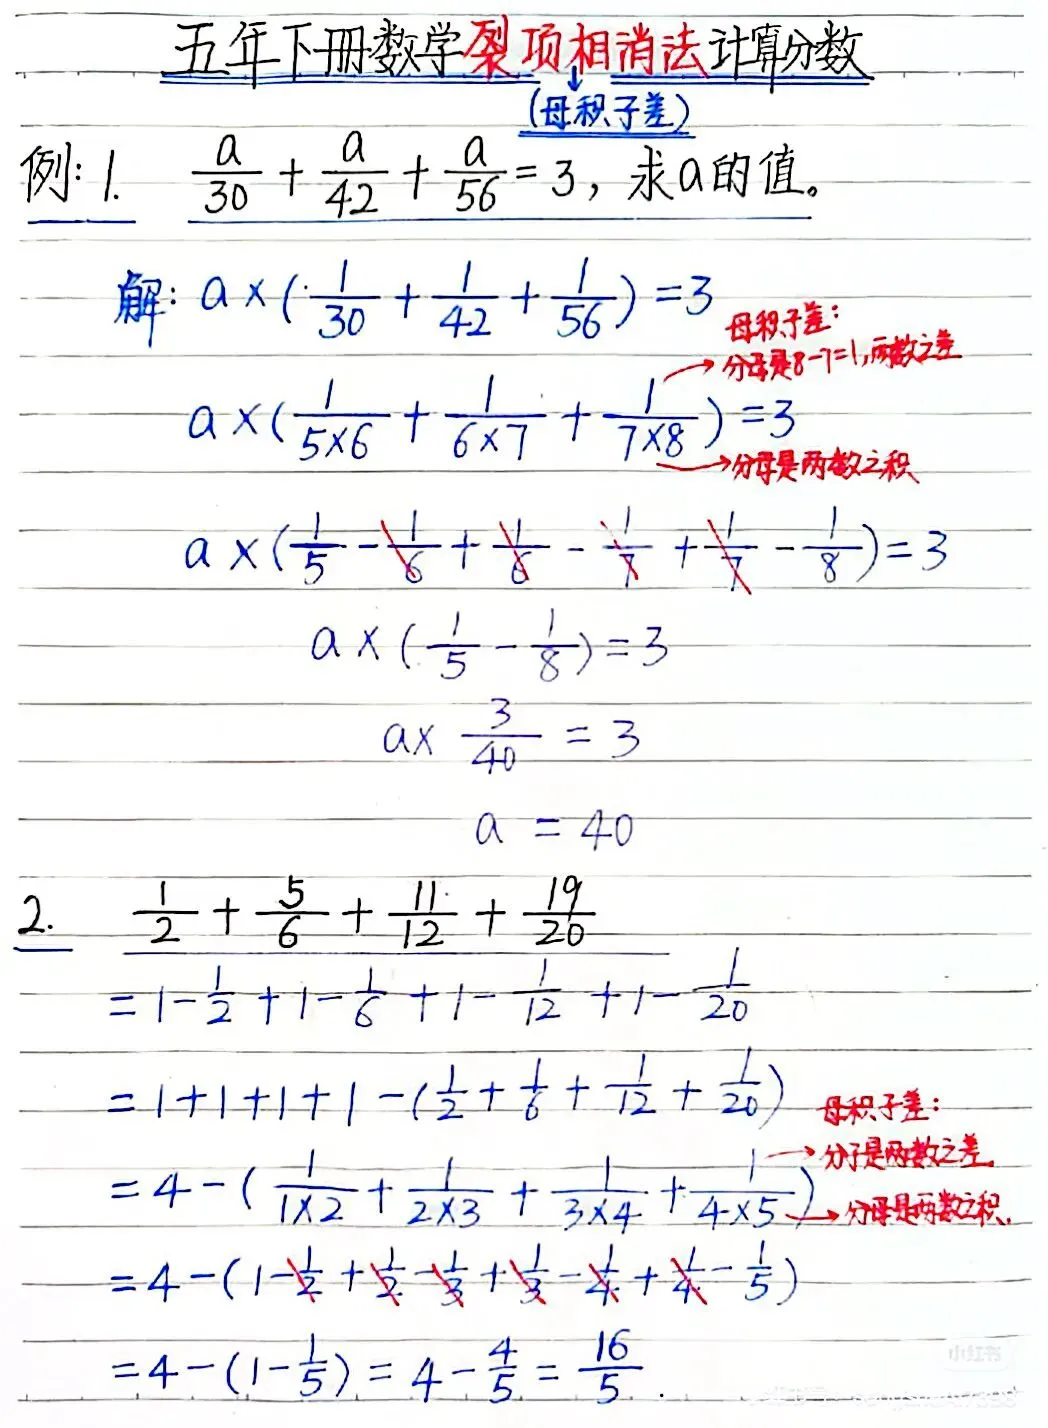 五年下册数学裂项相消法计算分数
(母积子差)
例:1. a/30 + a/42 + a/56 = 3, 求a的值。
解: a×(1/30 + 1/42 + 1/56) = 3
母积子差:
分母是8-7=1,两数之差
a×(1/5×6 + 1/6×7 + 1/7×8) = 3
分母是两数之积
a×(1/5 - 1/6 + 1/6 - 1/7 + 1/7 - 1/8) = 3
a×(1/5 - 1/8) = 3
a× 3/40 = 3
a = 40
2. 1/2 + 5/6 + 11/12 + 19/20
= 1 - 1/2 + 1 - 1/6 + 1 - 1/12 + 1 - 1/20
= 1+1+1+1 - (1/2 + 1/6 + 1/12 + 1/20)
母积子差:
分子是两数之差.
= 4 - (1/1×2 + 1/2×3 + 1/3×4 + 1/4×5)
分母是两数之积.
= 4 - (1 - 1/2 + 1/2 - 1/3 + 1/3 - 1/4 + 1/4 - 1/5)
= 4 - (1 - 1/5) = 4 - 4/5 = 16/5
小红书